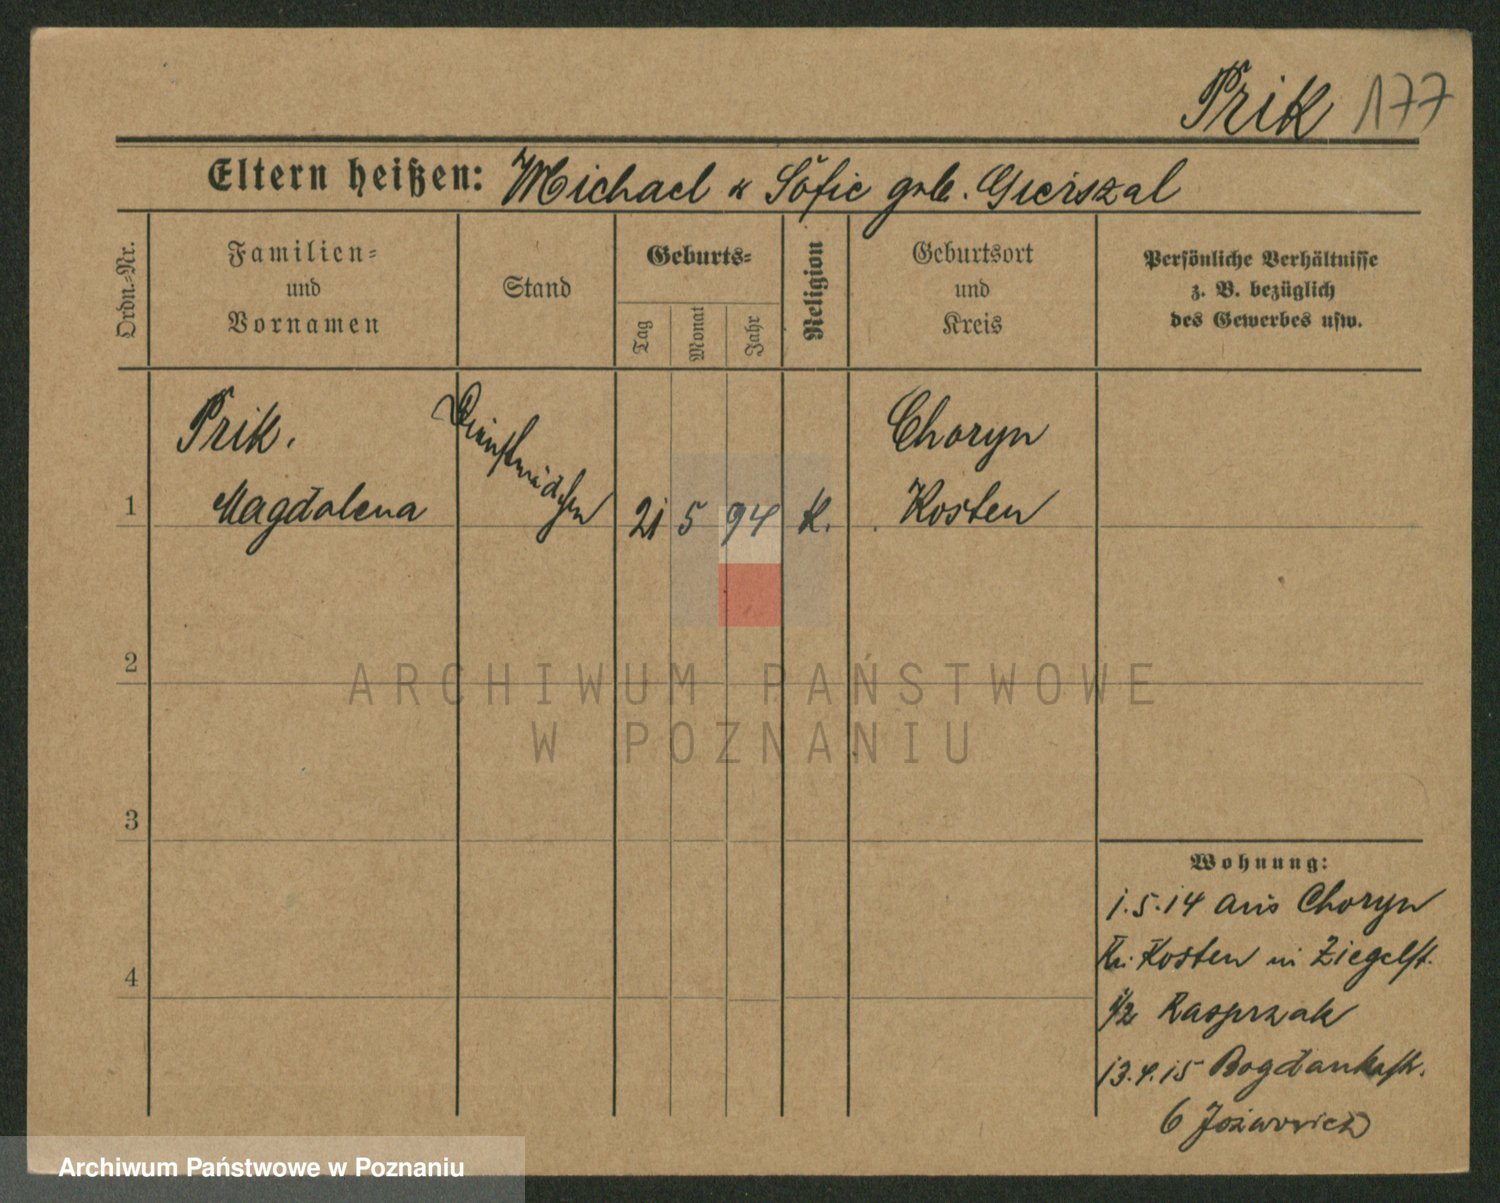 Prik 177
Eltern heißen: Michael u Sofie geb. Gierszal
Ordn.-Nr.
Familien-
und
Vornamen
Stand
Geburts-
Tag
Monat
Jahr
Religion
Geburtsort
und
Kreis
Persönliche Verhältnisse
z. B. bezüglich
des Gewerbes usw.
1
Prik.
Magdalena
Dienstmädchen
21 5 94 K.
Choryn
Kosten
2
3
4
Wohnung:
1.5.14 aus Choryn
Kr. Kosten in Ziegelst.
1/2 Kasprzak
13.4.15 Bogdankastr.
6
ARCHIWUM PAŃSTWOWE
W POZNANIU
Archiwum Państwowe w Poznaniu